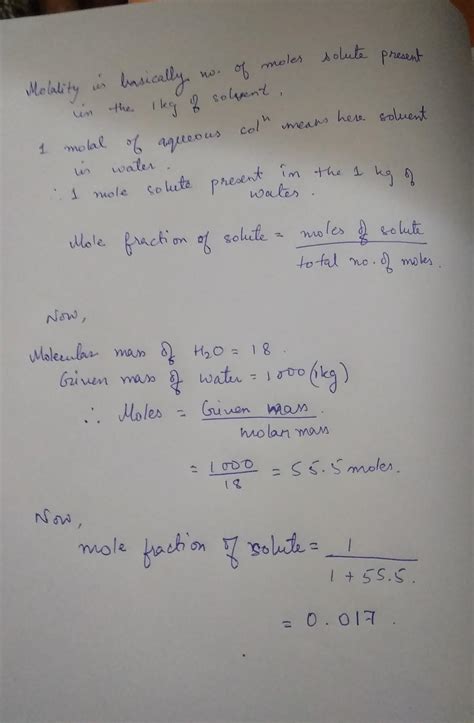 Molality is basically no. of moles solute present
in the 1kg of solvent.
1 molal of aqueous colⁿ means here solvent
is water.
∴ 1 mole solute present in the 1 kg of
water.
Mole fraction of solute = moles of solute
total no. of moles.
Now,
Molecular mass of H2O = 18.
Given mass of water = 1000 (1kg)
∴ Moles = Given mass
molar mass
= 1000 = 55.5 moles.
18
Now,
mole fraction of solute = 1
1 + 55.5.
= 0.017.